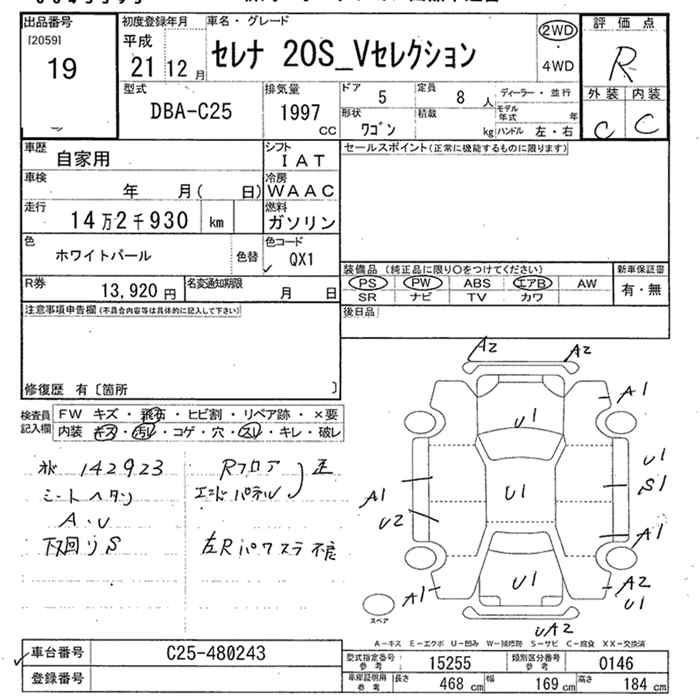 出品番号
[2059]
19
初度登録年月
平成
21 12 月
車名・グレード
セレナ 20S_Vセレクション
2WD
・
4WD
評価点
R
外装 内装
C C
型式
DBA-C25
排気量
1997
CC
ドア 5
定員 8 人
形状 ワゴン
積載 kg
ディーラー・並行
モデル年式 年
ハンドル 左・右
車歴 自家用
シフト IAT
セールスポイント(正常に機能するものに限ります)
車検 年 月( 日)
冷房 WAAC
走行 14万2千930 km
燃料 ガソリン
色 ホワイトパール 色替
色コード QX1
R券 13,920 円
名変通知期限 月 日
装備品 (純正品に限り○をつけてください)
PS PW ABS エアB AW
SR ナビ TV カワ
新車保証書
有・無
後日品
注意事項申告欄(不具合内容等は具体的に記入して下さい)
修復歴 有〔箇所 〕
検査員記入欄
FW キズ・飛石・ヒビ割・リペア跡・×要
内装 キズ・汚レ・コゲ・穴・スレ・キレ・破レ
142923
シートヘタリ
A・U
下回りS
Rフロア
エンドパネル
左Rパワスラ不良
A2 A2
A1
U1
U1
S1
A1
U2
U1
A1
A1
U1
A2
U1
UA2
スペア
A-キズ E-エクボ U-凹み W-補修跡 S-サビ C-腐食 XX-交換済
車台番号 C25-480243
登録番号
型式指定番号 参考 15255
類別区分番号 参考 0146
車庫証明用 参考 長さ 468 cm 幅 169 cm 高さ 184 cm